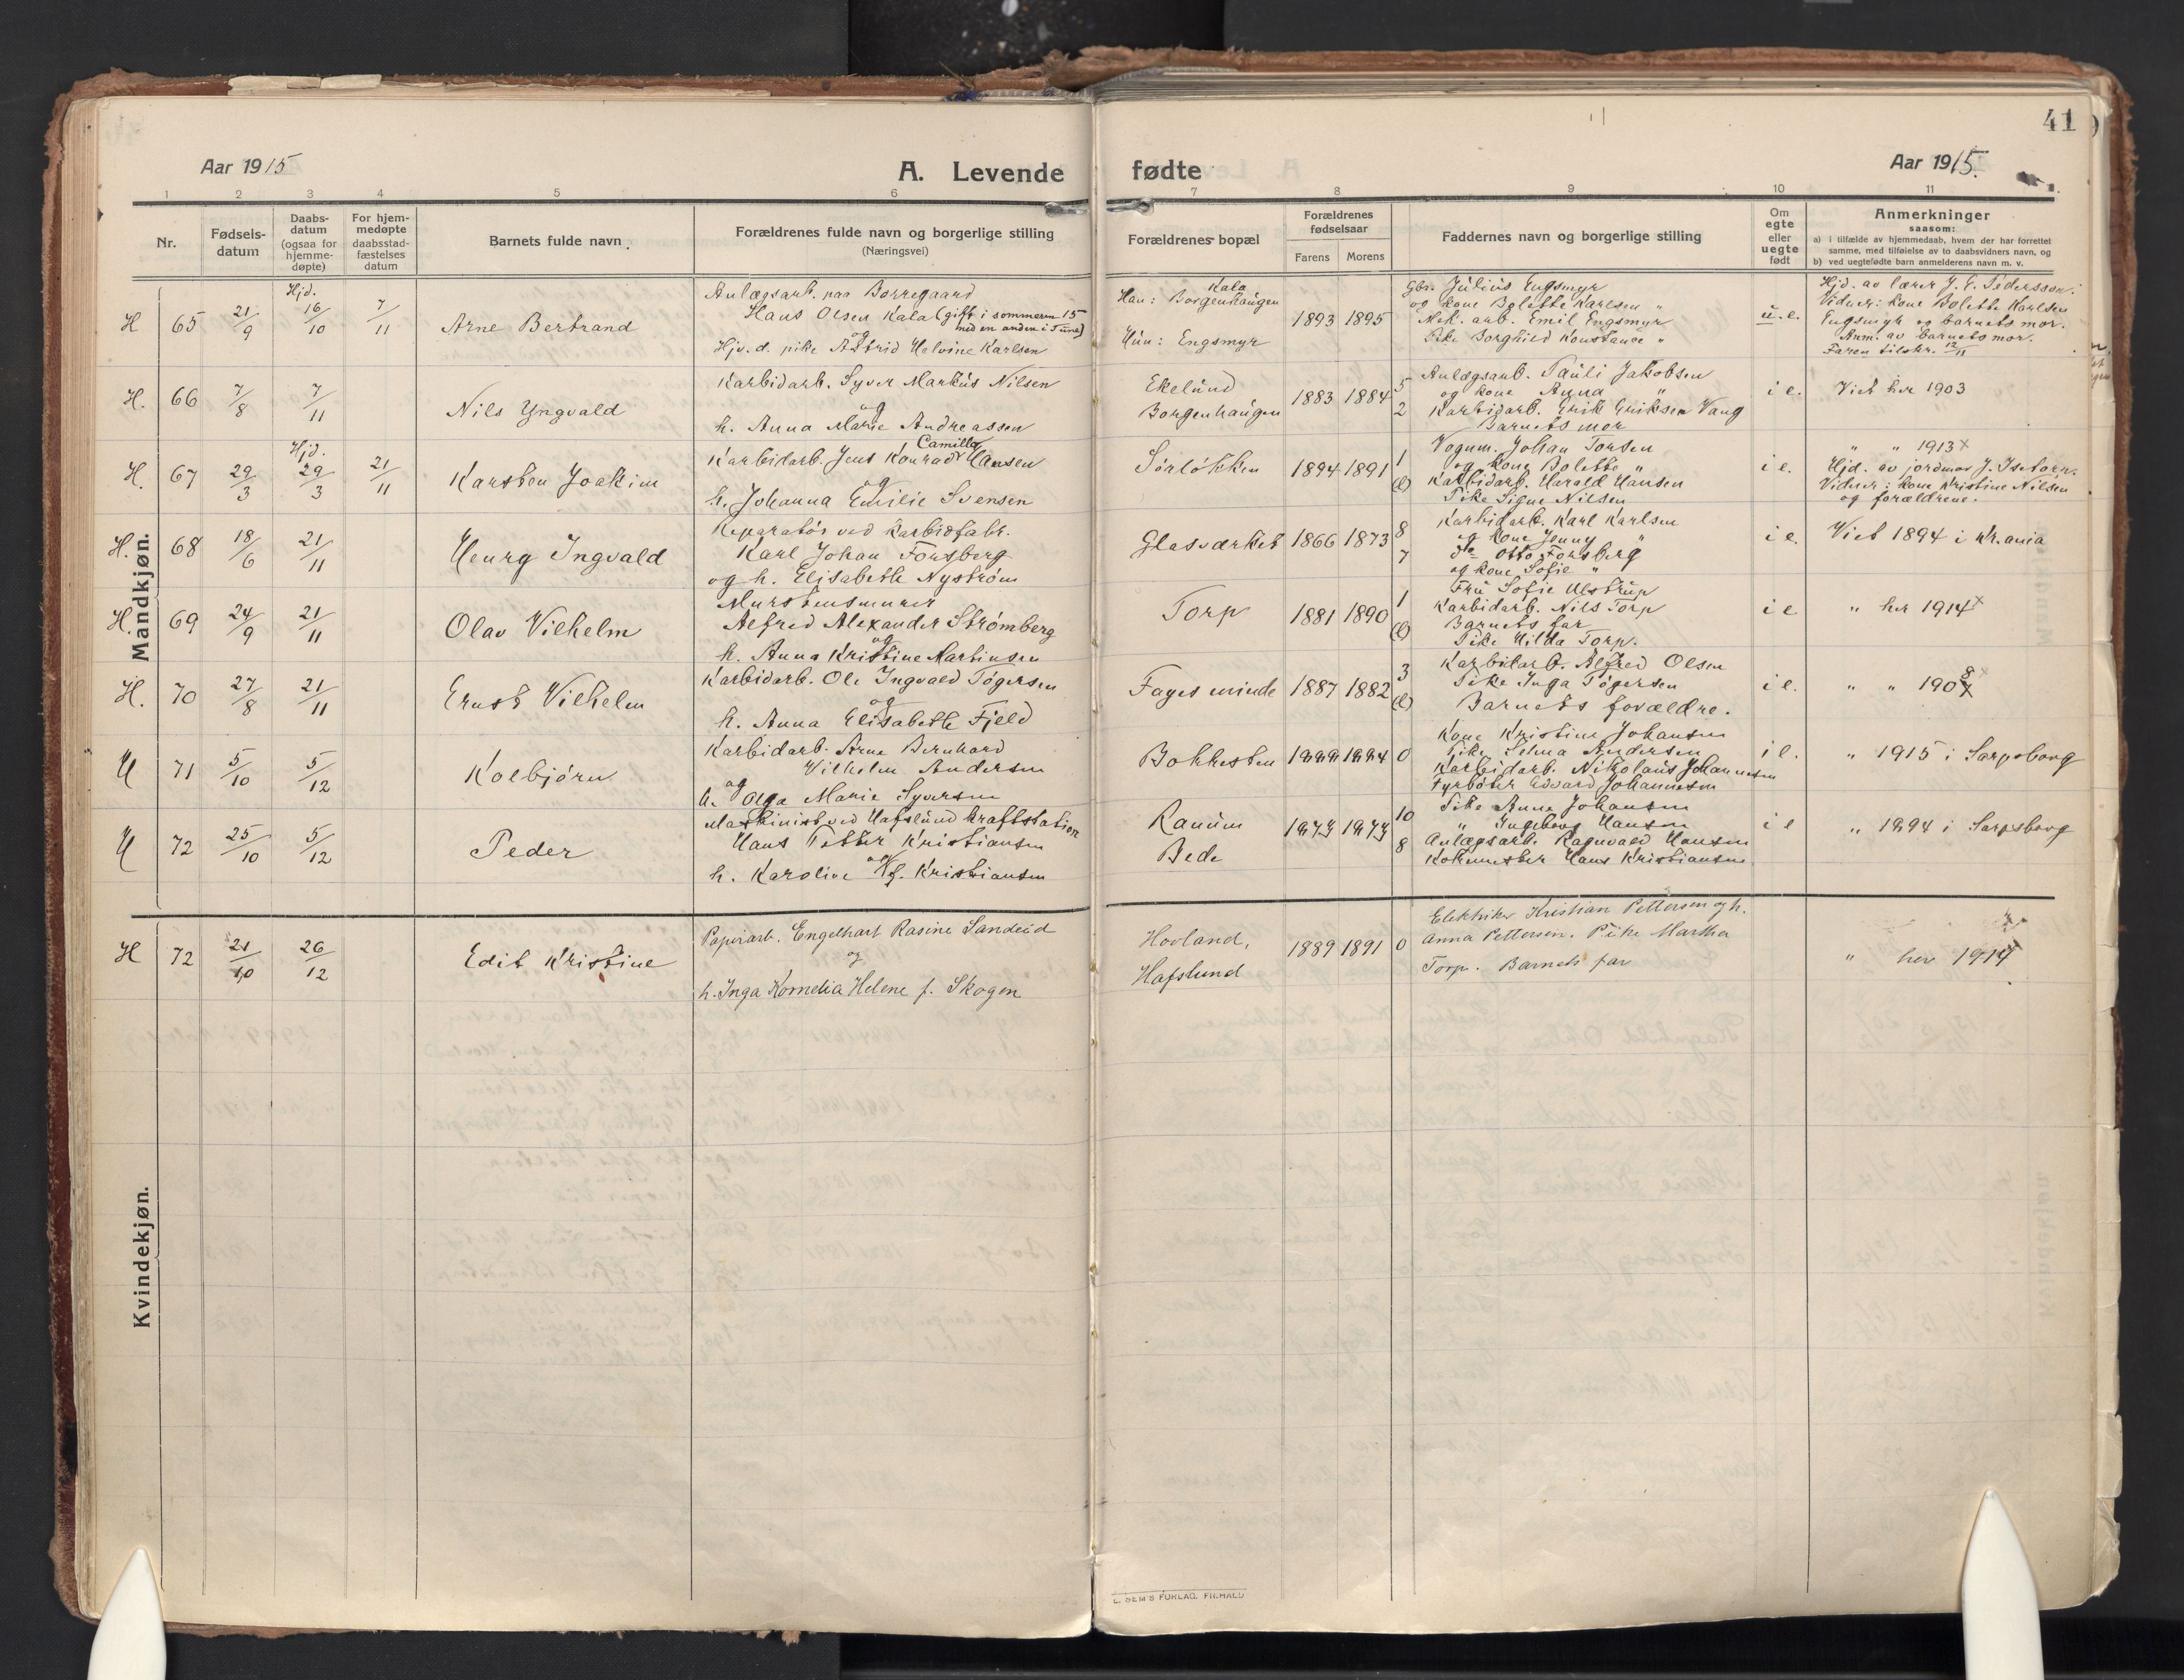 41
Aar 1915
A. Levende
fødte
Aar 1915.
1 2 3 4 5 6 7 8 9 10 11
Nr.
Fødsels-
datum
Daabs-
datum
(ogsaa for
hjemme-
døpte)
For hjem-
medøpte
daabsstad-
fæstelses
datum
Barnets fulde navn.
Forældrenes fulde navn og borgerlige stilling
(Næringsvei)
Forældrenes bopæl
Forældrenes
fødselsaar
Farens Morens
Faddernes navn og borgerlige stilling
Om
egte
eller
uegte
født
Anmerkninger
saasom:
a) i tilfælde av hjemmedaab, hvem der har forrettet
samme, med tilføielse av to daabsvidners navn, og
b) ved uegtefødte barn anmelderens navn m. v.
Mandkjøn.
H 65 21/9 Hjd. 16/10 7/11 Arne Bertrand
Anlægsarb. paa Borregaard
Hans Olsen Kala (gift i sommeren 15
med en anden i Tune)
og
Hjv. d. pike Astrid Helvine Karlsen
Kala
Han: Borgenhaugen
Hun: Engsmyr
1893 1895
Gbr. Julius Engsmyr
og kone Bolette Karlsen "
Mek. arb. Emil Engsmyr
Pike Borghild Konstance "
u. e.
Hjd. av lærer J. E. Pedersson.
Vidner: kone Bolette Karlsen
Engsmyr og barnets mor.
Anm. av barnets mor.
Faren tilskr. 12/11
H. 66 7/8 7/11 Nils Yngvald
Karbidarb. Syver Markus Nilsen
og
h. Anna Marie Andreassen
Ekelund
Borgenhaugen
1883 1884 5
2
Anlægsarb. Pauli Jakobsen
og kone Anna "
Karbidarb. Erik Eriksen Vang
Barnets mor
i e. Viet her 1903
H. 67 29/3 Hjd. 29/3 21/11 Karsten Joakim
Camilla
Karbidarb. Jens Konrad Hansen
og
h. Johanna Emilie Svensen
Sørløkken
1894 1891 1
(l)
Vognm. Johan Torsen
og kone Bolette "
Karbidarb. Harald Hansen
Pike Signe Nilsen
i e.
" " 1913 x
Hjd. av jordmor J. Isetorp.
Vidner: kone Kristine Nilsen
og forældrene.
H. 68 18/6 21/11 Henry Ingvald
Reparatør ved Karbidfabr.
Karl Johan Forsberg
og h. Elisabeth Nystrøm
Glasværket
1866 1873 8
7
Karbidarb. Karl Karlsen
og kone Jenny "
do Otto Forsberg
og kone Sofie "
i e. Viet 1894 i Kr.ania
H. 69 24/9 21/11 Olav Vilhelm
Murstensmurer
Alfred Alexander Strømberg
og
h. Anna Kristine Martinsen
Torp
1881 1890 1
(l)
Fru Sofie Ulstrup
Karbidarb. Nils Torp
Barnets far
Pike Hilda Torp.
i e " her 1914 x
H. 70 27/8 21/11 Ernst Vilhelm
Karbidarb. Ole Ingvald Tøgersen
og
h. Anna Elisabeth Fjeld
Fagesminde
1887 1882 3
(l)
Karbidarb. Alfred Olsen
Pike Inga Tøgersen
Barnets forældre.
i e. " " 1908
H 71 5/10 5/12 Kolbjørn
Karbidarb. Arne Bernhard
Vilhelm Andersen
og
h. Olga Marie Syversen
Bokkesten
1888 1884 0
Kone Kristine Johansen
Pike Selma Andersen
Karbidarb. Nikolaus Johannesen
Fyrbøter Edvard Johannesen
i e. " 1915 i Sarpsborg
H 72 25/10 5/12 Peder
Maskinist ved Hafslund kraftstation
Hans Petter Kristiansen
og
h. Karoline f. Kristiansen
Ranum
Bede
1873 1873 10
8
Pike Anna Johansen
" Ingeborg Hansen
Anlægsarb. Ragnvald Hansen
Kokemester Hans Kristiansen
i e " 1894 i Sarpsborg
Kvindekjøn.
H 72 21/10 26/12 Edit Kristine
Papirarb. Engelhart Rasine Sandeid
og
h. Inga Kornelia Helene f. Skogen
Hovland,
Hafslund
1889 1891 0
Elektriker Kristian Pettersen og h.
Anna Pettersen. Pike Martha
Torp. Barnets far
" her 1914
E. SEM'S FORLAG. FR.HALD